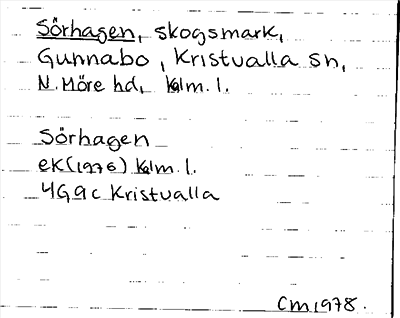 Sörhagen, skogsmark,
Gunnabo, Kristvalla sn,
N. Möre hd, Kalm. l.
Sörhagen
ek(1976) Kalm. l.
4G9c Kristvalla
CM 1978.